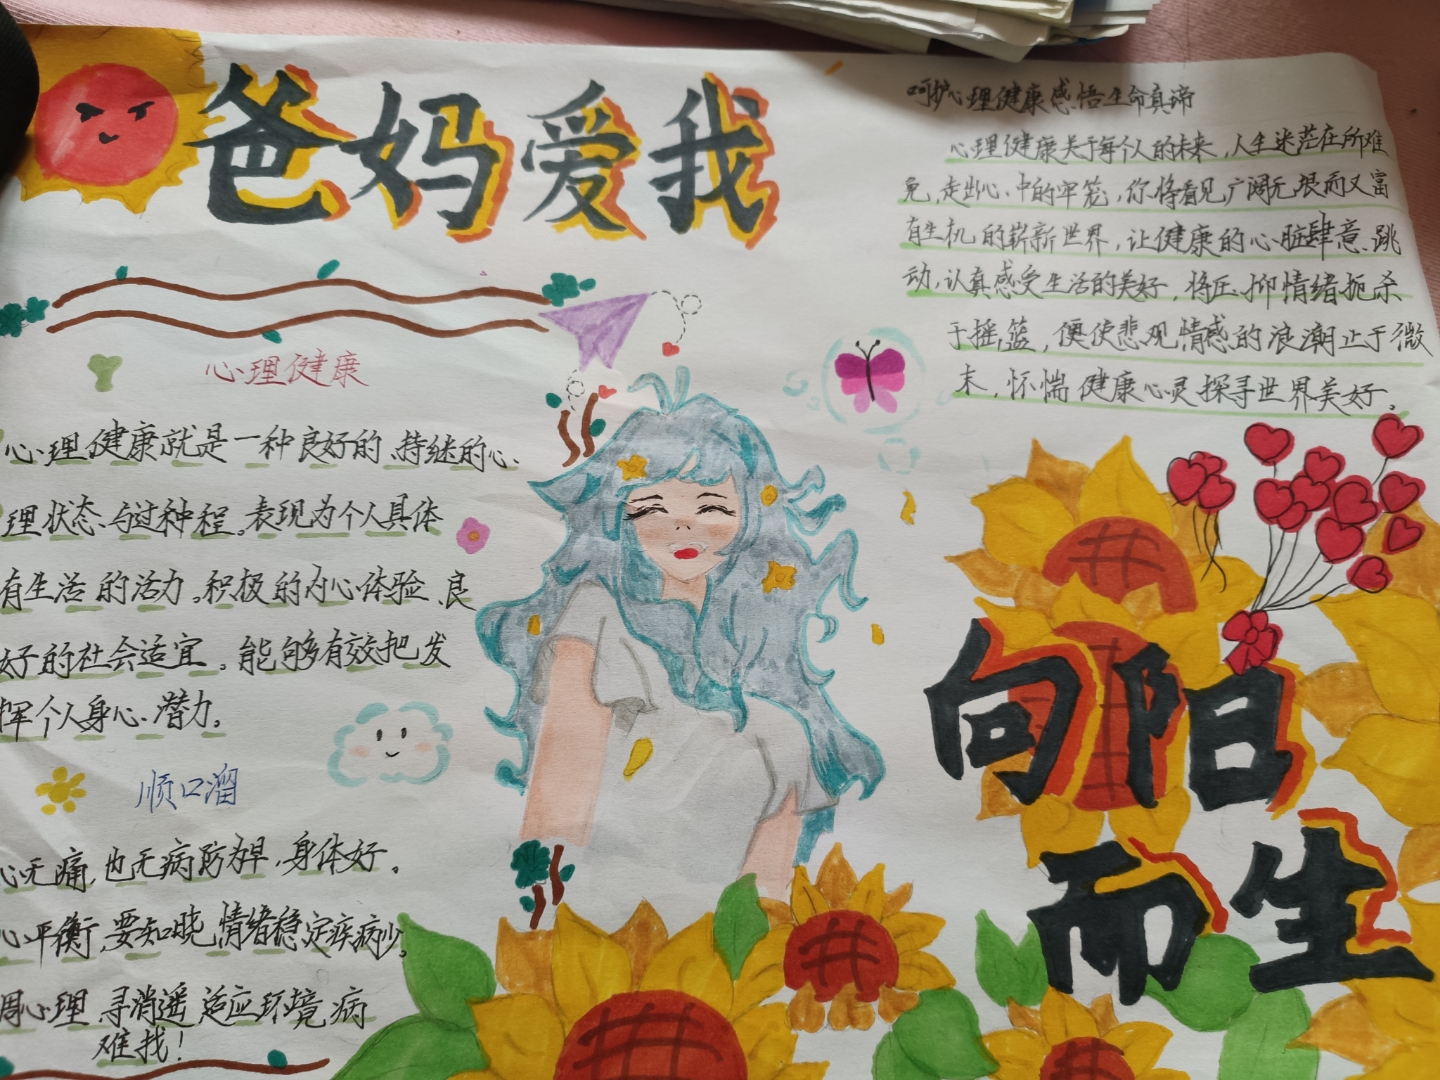 爸妈爱我
呵护心理健康感悟生命真谛
心理健康关于每个人的未来，人生迷茫在所难
免，走出心中的牢笼，你将看见广阔无垠而又富
有生机的崭新世界，让健康的心脏肆意跳
动，认真感受生活的美好，将压抑情绪扼杀
于摇篮，便使悲观情感的浪潮止于微
末，怀揣健康心灵探寻世界美好。
心理健康
心理健康就是一种良好的、持继的心
理状态与过种程。表现为个人具体
有生活的活力。积极的内心体验、良
好的社会适宜。能够有效把发
挥个人身心潜力。
顺口溜
心无痛，也无病防为早，身体好。
心平衡，要知晓，情绪稳定疾病少。
调心理，寻消遥，适应环境病
难找！
向阳
而生